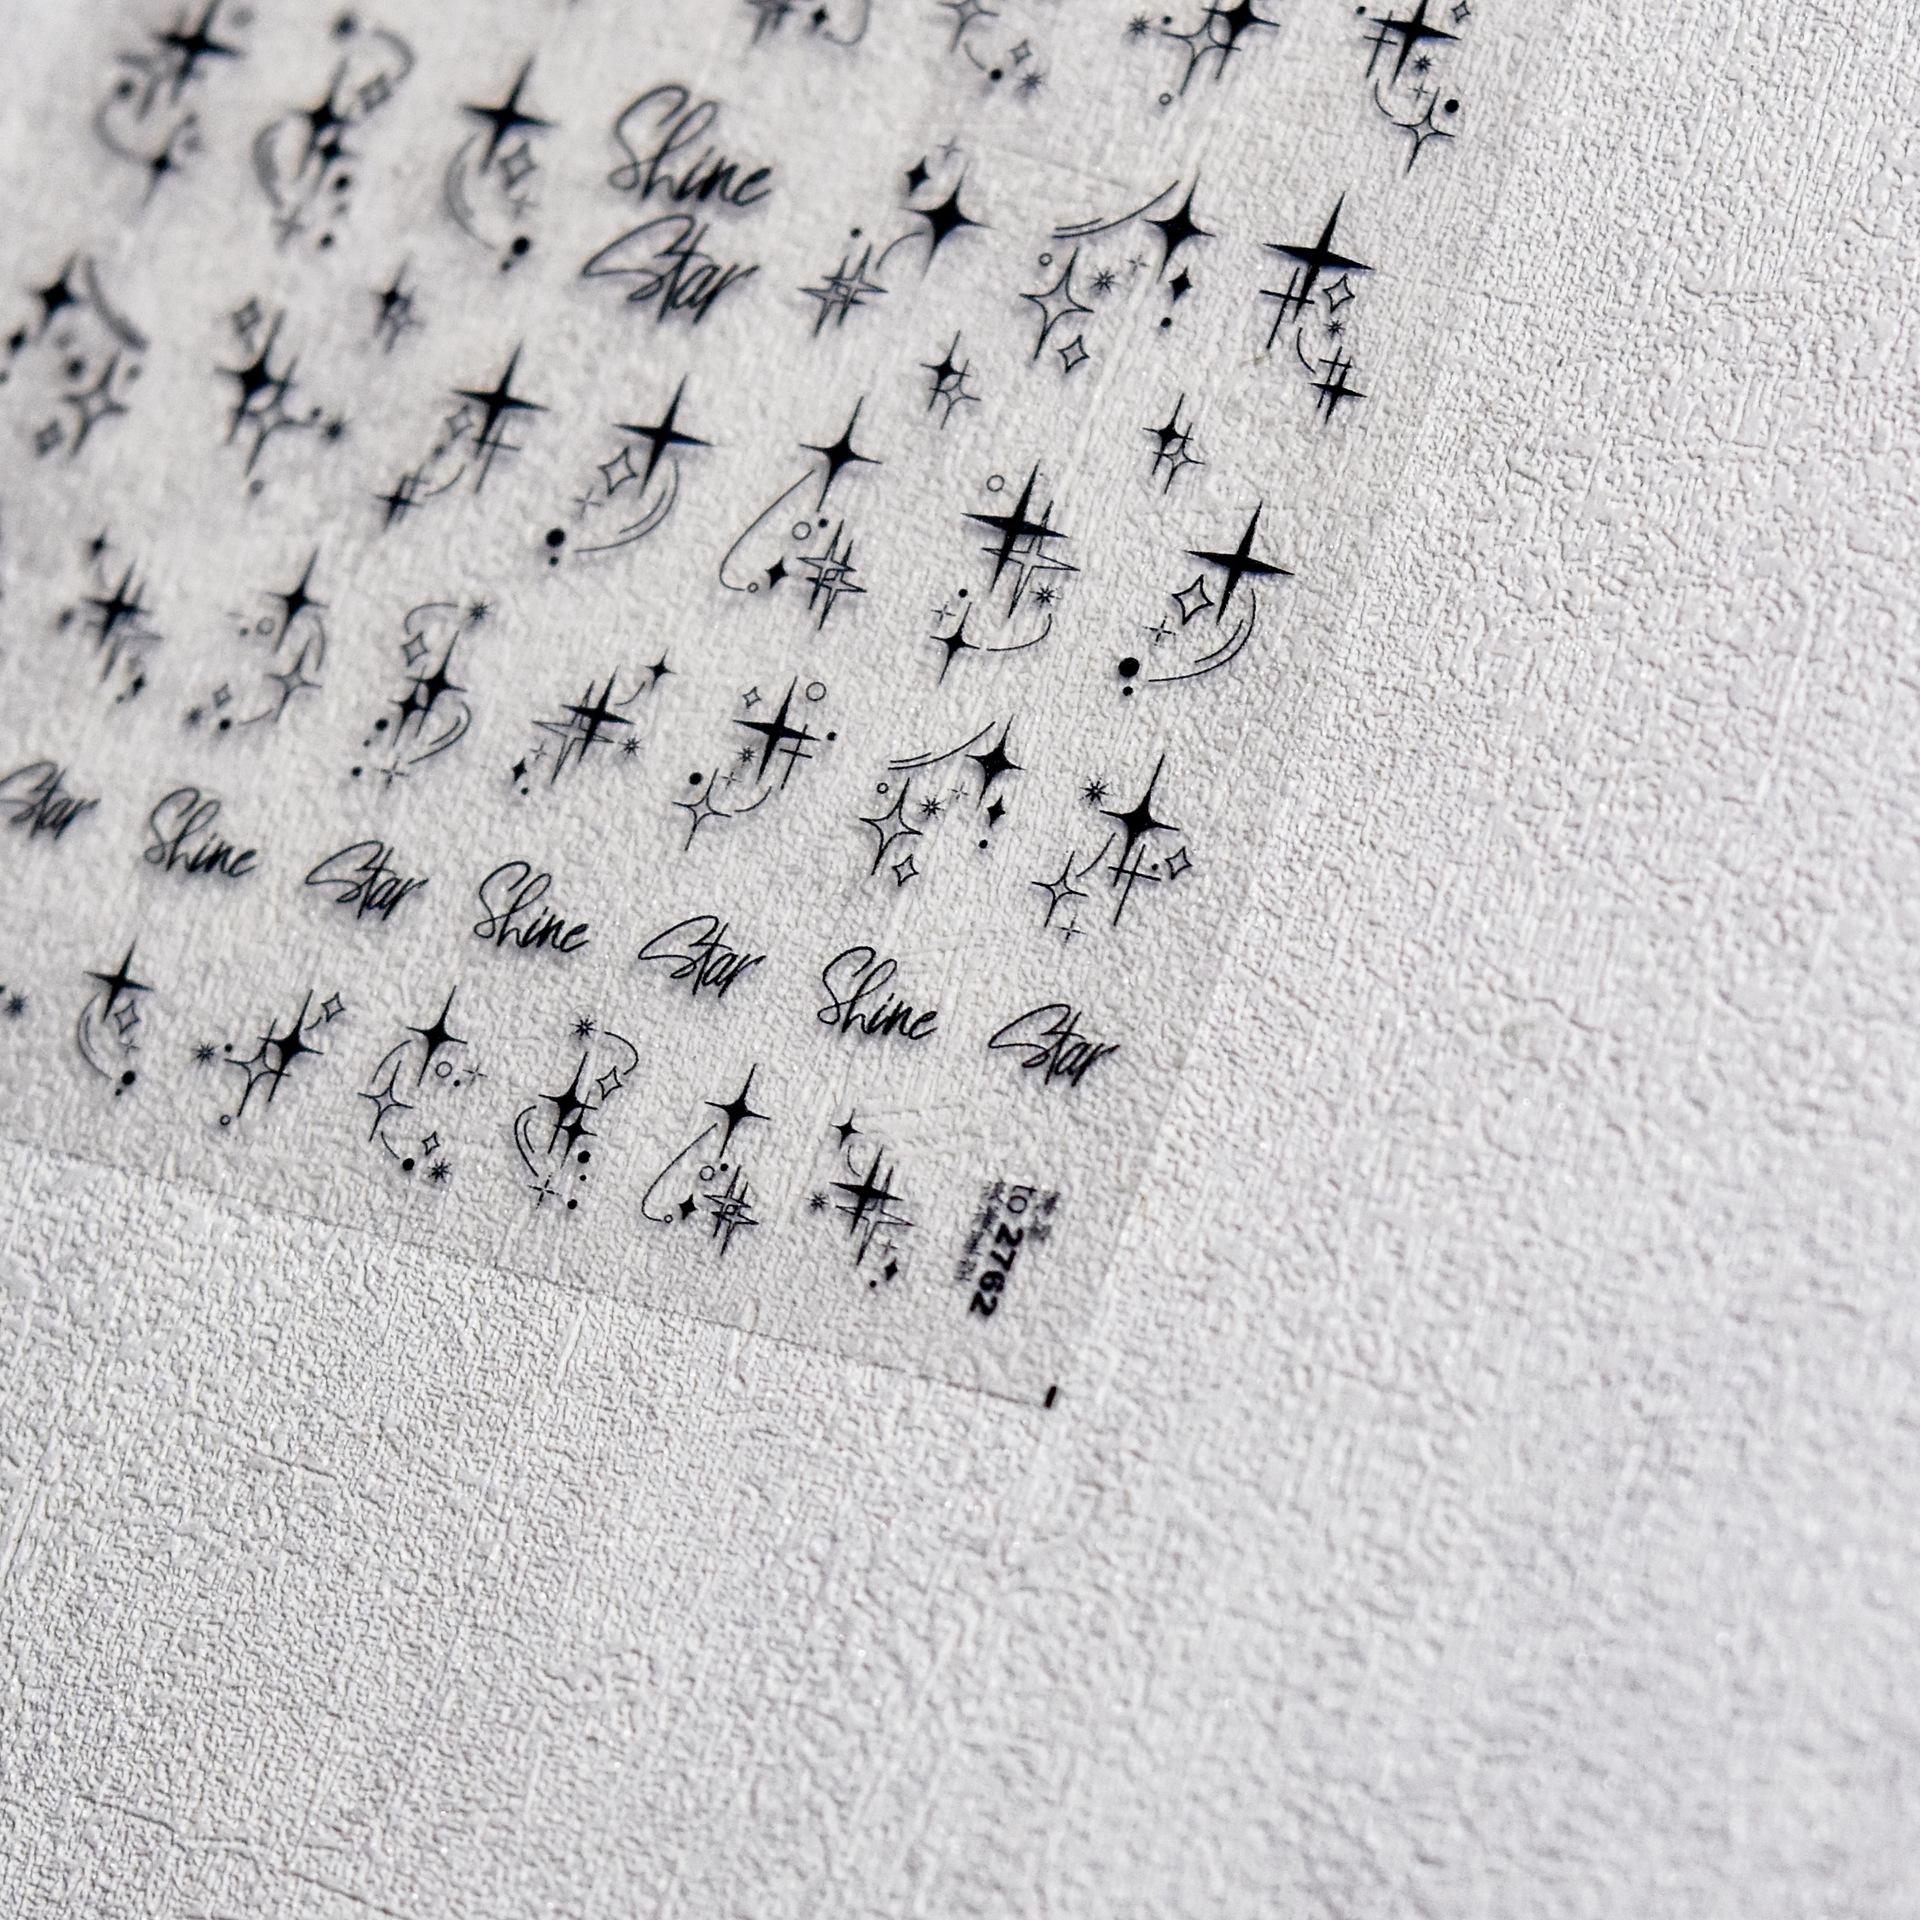 Shine
Star
Star Shine Star Shine Star Shine Star
to 2762